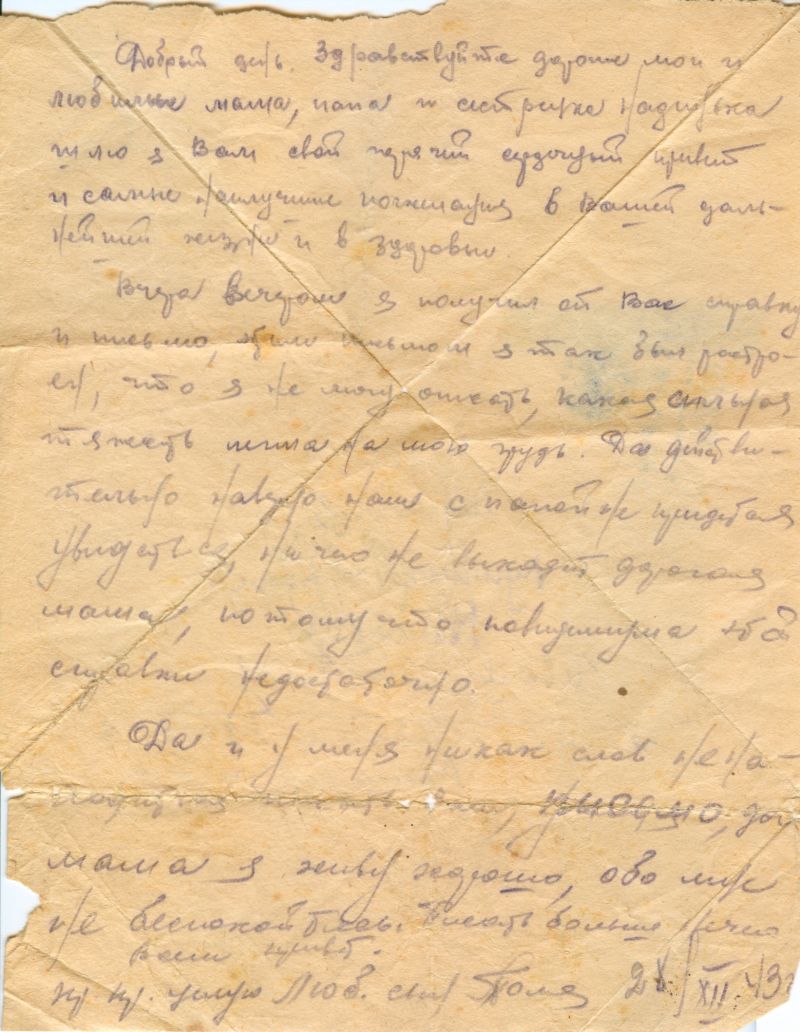 Добрый день. Здравствуйте дорогие мои и
любимые мама, папа и сестричка Надичка
шлю я Вам свой горячий сердечный привет
и самые наилучшие пожелания в Вашей даль-
нейшей жизни и в здоровьи.
Вчера вечером я получил от Вас справку
и письмо, этим письмом я так был растро-
ен, что я не могу описать, какая сильная
тяжесть легла на мою грудь. Да действи-
тельно наверно нам с папой не придется
увидеться, ничего не выходит дорогая
мама, потому что повидимиума этой
справки недостаточно.
Да и у меня никак слов не на-
писать Вам,
мама я живу хорошо, обо мне
не беспокойтесь. Писать больше нечего
Ваш привет.
кр кр. целую Люб. сын Толя 28/XII 43г